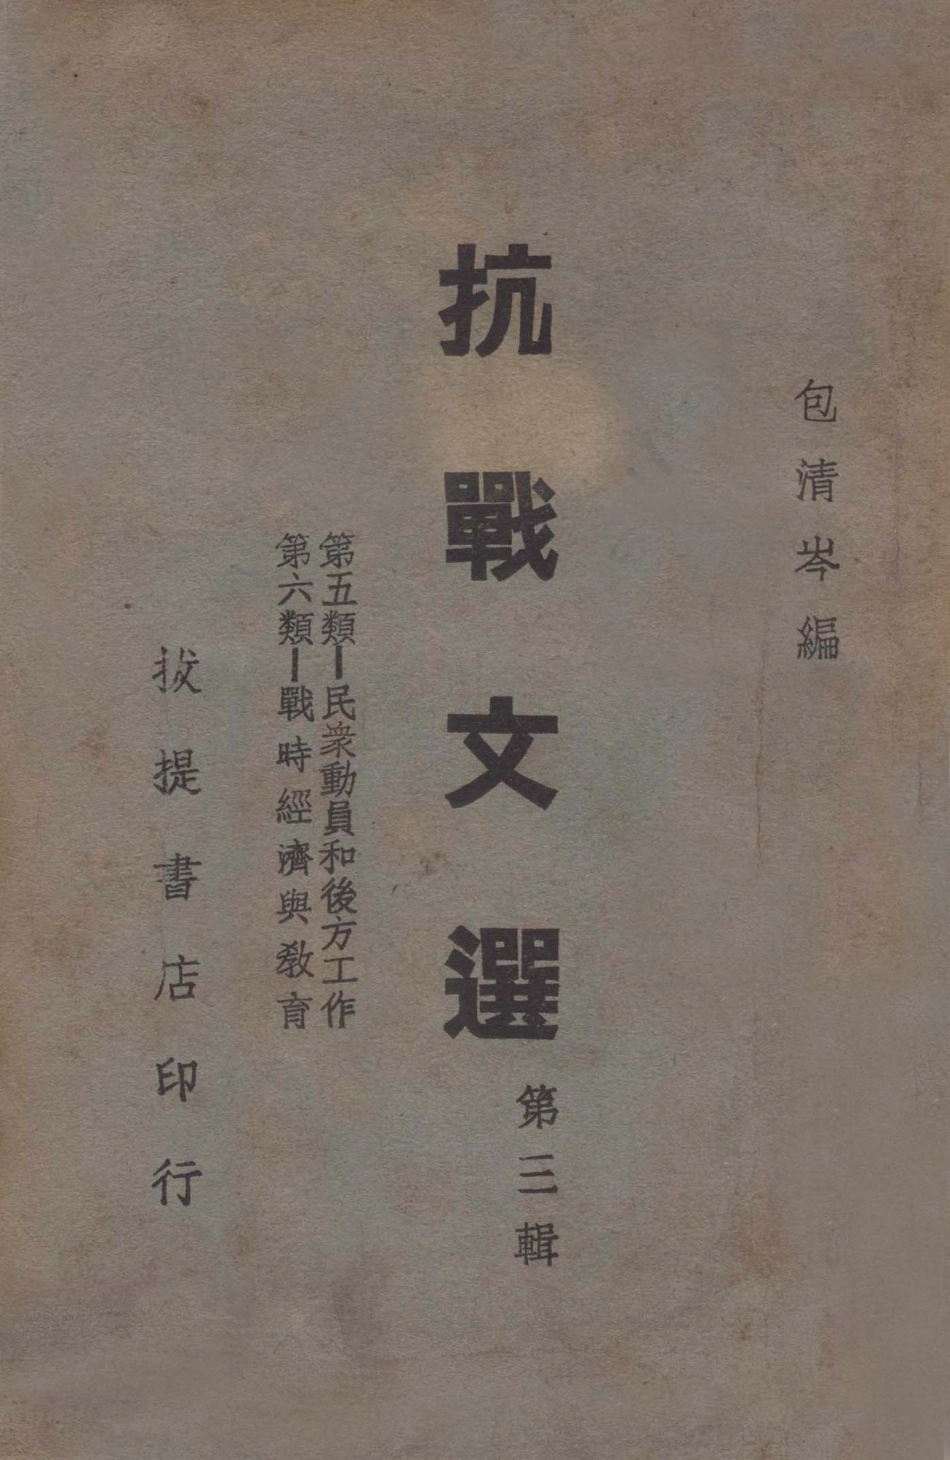 包清岑編
抗戰文選
第三輯
第五類—民衆動員和後方工作
第六類—戰時經濟與教育
拔提書店印行